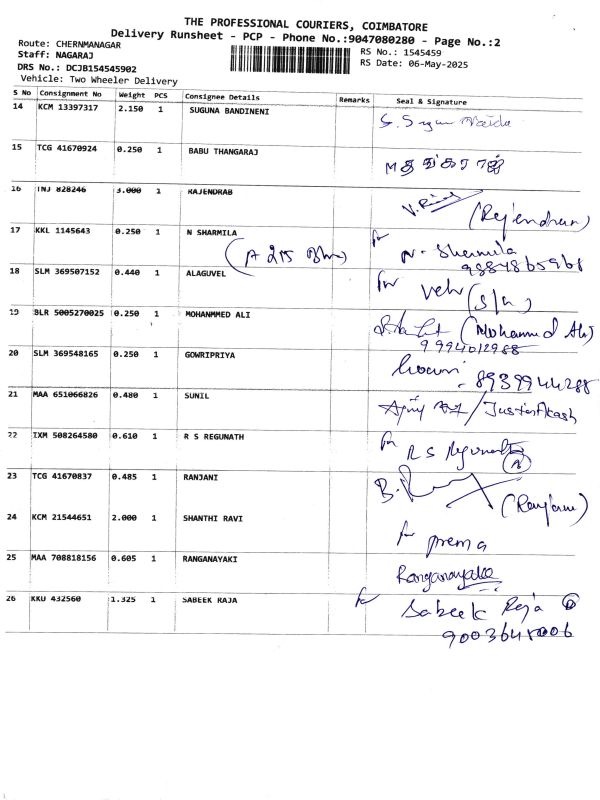 THE PROFESSIONAL COURIERS, COIMBATORE
Delivery Runsheet - PCP - Phone No.:9047080280 - Page No.:2
Route: CHERNMANAGAR
Staff: NAGARAJ
DRS No.: DCJB154545902
Vehicle: Two Wheeler Delivery
RS No.: 1545459
RS Date: 06-May-2025
S No Consignment No Weight PCS Consignee Details Remarks Seal & Signature
14 KCM 13397317 2.150 1 SUGUNA BANDINENI
15 TCG 41670924 0.250 1 BABU THANGARAJ
16 INJ 828246 3.000 1 RAJENDRAB (Rajendran)
17 KKL 1145643 0.250 1 N SHARMILA for N. Sharmila
9884865968
18 SLM 369507152 0.440 1 ALAGUVEL for
19 BLR 5005270025 0.250 1 MOHANMMED ALI (Mohammed Ali)
9994012988
20 SLM 369548165 0.250 1 GOWRIPRIYA Gowri
- 8939944288
21 MAA 651066826 0.480 1 SUNIL
22 IXM 508264580 0.610 1 R S REGUNATH for R S Regunath
23 TCG 41670837 0.485 1 RANJANI (Ranjani)
24 KCM 21544651 2.000 1 SHANTHI RAVI for prema
25 MAA 708818156 0.605 1 RANGANAYAKI Ranganayakee
26 KKU 432560 1.325 1 SABEEK RAJA for Sabeek Raja